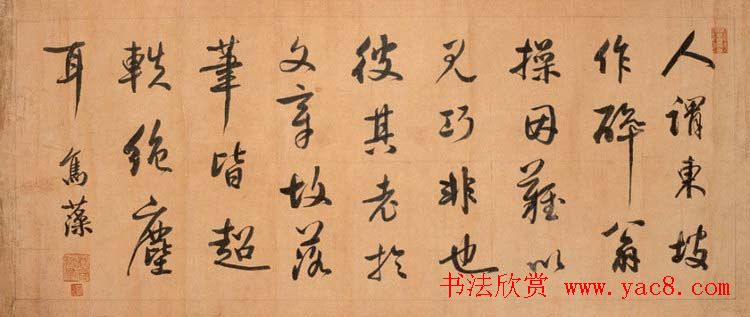 人謂東坡
作醉翁
操因難以
見巧非也
彼其老於
文章故落
筆皆超
軼絶塵
耳
書法欣賞 www.yac8.com